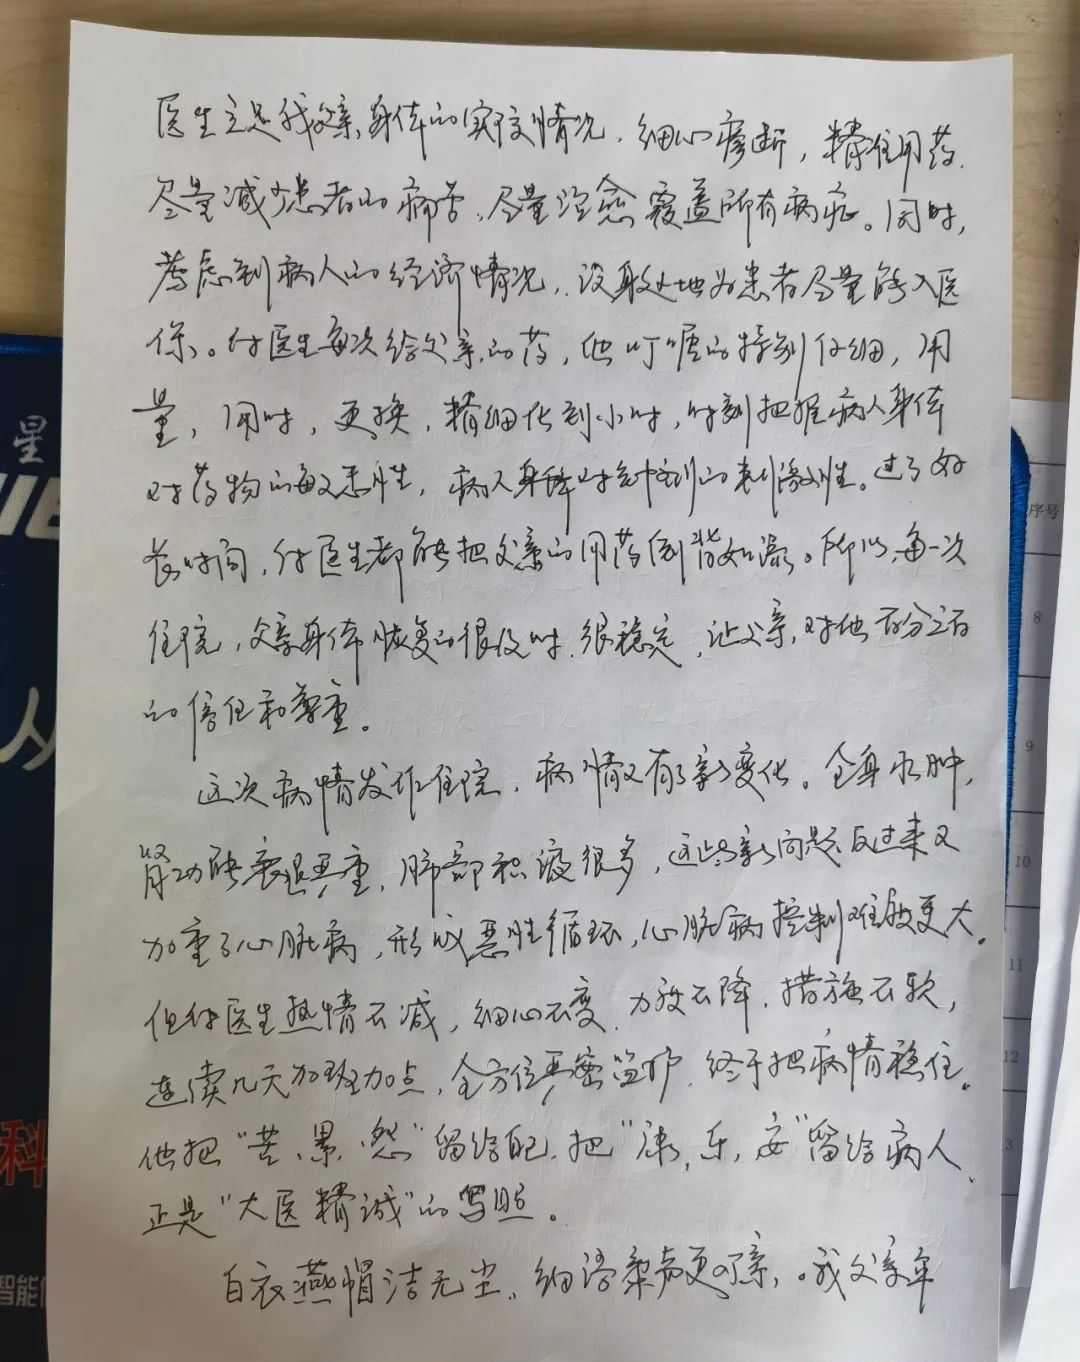 医生立足我父亲身体的实际情况，细心诊断，精准用药，
尽量减少患者的痛苦，尽量治愈覆盖所有病症。同时，
考虑到病人的经济情况，设身处地为患者尽量能入医
保。付医生每次给父亲的药，他叮嘱的特别仔细，用
量，用时，更换，精细化到小时，时刻把握病人身体
对药物的每文恶性，病人身体对针剂的刺激性。过了好
长时间，付医生都能把父亲的用药倒背如流。所以，每一次
住院，父亲身体恢复的很及时，很稳定，让父亲对他百分之百
的信任和尊重。
这次病情发作住院，病情又有了新变化。全身水肿，
肾功能衰退严重，肺部积液很多，这些新问题反过来又
加重了心脏病，形成恶性循环，心脏病控制难度更大。
但付医生热情不减，细心不变，力度不降，措施不软，
连续几天加班加点，全方位严密监护，终于把病情稳住。
他把“苦、累、怨”留给自己，把“康，乐，安”留给病人，
正是“大医精诚”的写照。
白衣燕帽洁无尘，细语柔声更可亲。我父亲年
星
从
科
智能
序号
8
9
10
11
12
13